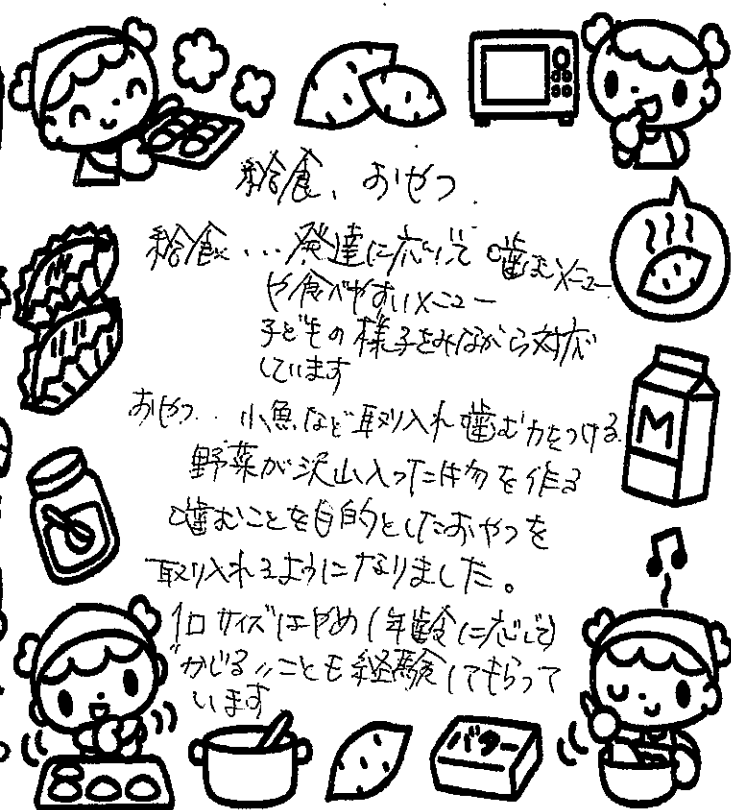 給食、おやつ
給食…発達に応じて噛むメニュー
や食べやすいメニュー
子どもの様子をみながら対応
しています
おやつ…小魚など取り入れ噛む力をつける
野菜が沢山入った汁物を作る
噛むことを目的としたおやつを
取り入れるようになりました。
1口サイズはやめ(年齢に応じて)
"かじる"ことも経験してもらって
います
M
バター